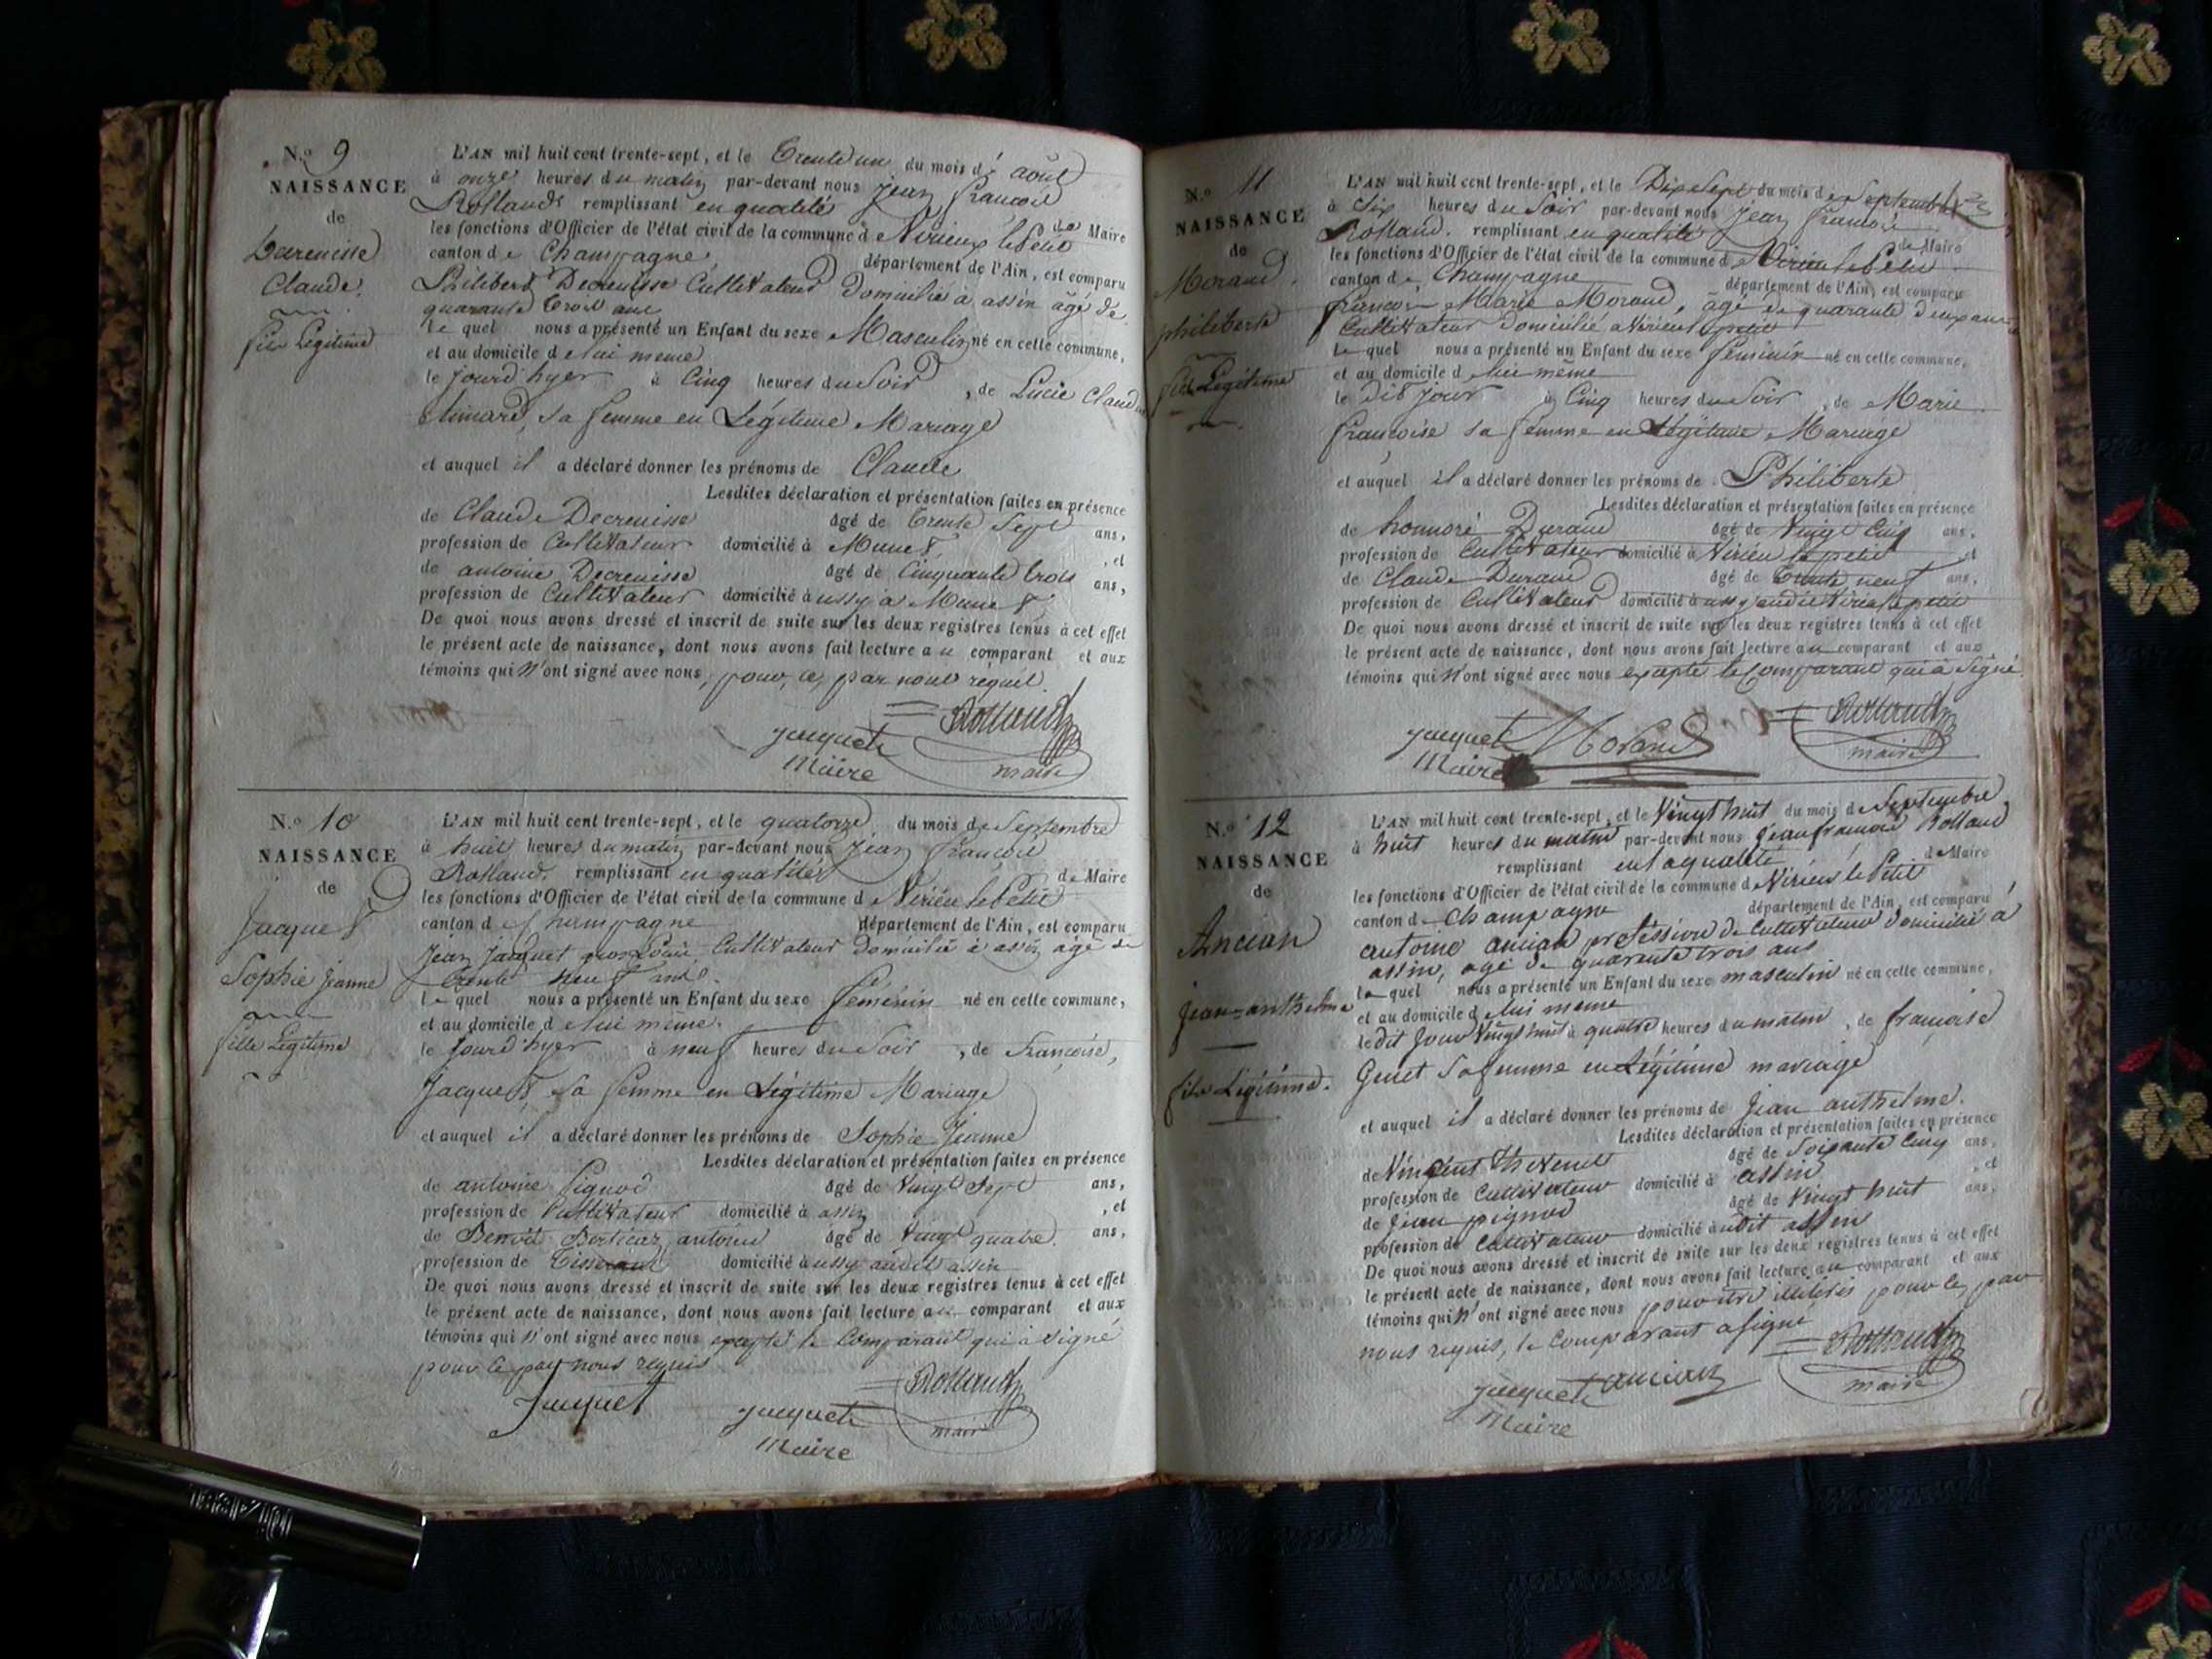 N.º 9
NAISSANCE
de
Decreuisse
Claude.
fils Légitime
L'AN mil huit cent trente-sept, et le Trente un du mois d' août
à onze heures du matin par-devant nous Jean françois
Rolland remplissant en qualité de Maire
les fonctions d'Officier de l'état civil de la commune d e Virieu le Petit
canton de Champagne, département de l'Ain, est comparu
Philibert Decreuisse Cultivateur domicilié à assin âgé de
quarante trois ans
le quel nous a présenté un Enfant du sexe Masculin né en cette commune,
et au domicile d e lui meme
le jourd'hyer à Cinq heures du Soir, de Lucie Claudine
sa femme en Légitime Mariage
et auquel il a déclaré donner les prénoms de Claude
Lesdites déclaration et présentation faites en présence
de Claude Decreuisse âgé de trente Sept ans,
profession de Cultivateur domicilié à Munet, et
de antoine Decreuisse âgé de Cinquante trois ans,
profession de Cultivateur domicilié à ussy à Munet
De quoi nous avons dressé et inscrit de suite sur les deux registres tenus à cet effet
le présent acte de naissance, dont nous avons fait lecture a u comparant et aux
témoins qui n'ont signé avec nous, pour ce, par nous requil.
Jacquet Rolland
Maire maire
N.º 10
NAISSANCE
de
Jacquet
Sophie Jeanne
fille Légitime
L'AN mil huit cent trente-sept, et le quatorze du mois de Septembre
à huit heures du matin par-devant nous Jean françois
Rolland. remplissant en qualité de Maire
les fonctions d'Officier de l'état civil de la commune d e Virieu le Petit
canton d e Champagne département de l'Ain, est comparu
Jean Jacquet Cultivateur domicilié à assin âgé de
trente neuf ans.
le quel nous a présenté un Enfant du sexe féminin né en cette commune,
et au domicile d e lui même.
le jourd'hyer à neuf heures du Soir, de françoise,
Jacquet, sa femme en Légitime Mariage
et auquel il a déclaré donner les prénoms de Sophie Jeanne
Lesdites déclaration et présentation faites en présence
de antoine Pignod âgé de Vingt Sept ans,
profession de Cultivateur domicilié à assin, et
de Benoit antoine âgé de Vingt quatre ans,
profession de Tisserand domicilié à ussy audit assin
De quoi nous avons dressé et inscrit de suite sur les deux registres tenus à cet effet
le présent acte de naissance, dont nous avons fait lecture a u comparant et aux
témoins qui n'ont signé avec nous excepté le Comparant qui à signé
pour ce par nous requis
Jacquet Jacquet Rolland
Maire maire
N.º 11
NAISSANCE
de
Morand.
philiberte
fille Légitime
L'AN mil huit cent trente-sept, et le Dix Sept du mois de Septembre
à Six heures du Soir par-devant nous Jean françois
Rolland. remplissant en qualité de Maire
les fonctions d'Officier de l'état civil de la commune d e Virieu le Petit
canton de Champagne département de l'Ain, est comparu
françois Marie Morand, âgé de quarante deux ans
Cultivateur domicilié a Virieu le petit
le quel nous a présenté un Enfant du sexe féminin né en cette commune,
et au domicile d e lui même
le dit jour à Cinq heures du Soir, de Marie
françoise sa femme en Légitime Mariage
et auquel il a déclaré donner les prénoms de Philiberte
Lesdites déclaration et présentation faites en présence
de honnoré Durand âgé de Vingt Cinq ans,
profession de Cultivateur domicilié à Virieu le petit, et
de Claude Durand âgé de trente neuf ans,
profession de Cultivateur domicilié à ussy audit Virieu le petit
De quoi nous avons dressé et inscrit de suite sur les deux registres tenus à cet effet
le présent acte de naissance, dont nous avons fait lecture a u comparant et aux
témoins qui n'ont signé avec nous excepté le Comparant qui à Signé
Jacquet Morand Rolland
Maire maire
N.º 12
NAISSANCE
de
Ancian
jean=anthelme
fils Légitime.
L'AN mil huit cent trente-sept, et le Vingt huit du mois de Septembre
à huit heures du matin par-devant nous jean françois Rolland
remplissant en la qualité de Maire
les fonctions d'Officier de l'état civil de la commune d e Virieu le Petit
canton de Champagne département de l'Ain, est comparu
antoine ancian profession de Cultivateur domicilié à
assin, âgé de quarante trois ans
le quel nous a présenté un Enfant du sexe masculin né en cette commune,
et au domicile d e lui meme
le dit jour Vingt huit à quatre heures du matin, de françoise
Genet Sa femme en Légitime mariage
et auquel il a déclaré donner les prénoms de jean anthelme.
Lesdites déclaration et présentation faites en présence
de Vincent thevenet âgé de Soixante Cinq ans,
profession de Cultivateur domicilié à assin, et
de jean pignod âgé de Vingt huit ans,
profession de Cultivateur domicilié à udit assin
De quoi nous avons dressé et inscrit de suite sur les deux registres tenus à cet effet
le présent acte de naissance, dont nous avons fait lecture a u comparant et aux
témoins qui n'ont signé avec nous pour être illitérés pour ce, par
nous requis, le comparant a signé
Jacquet ancian Rolland
Maire maire